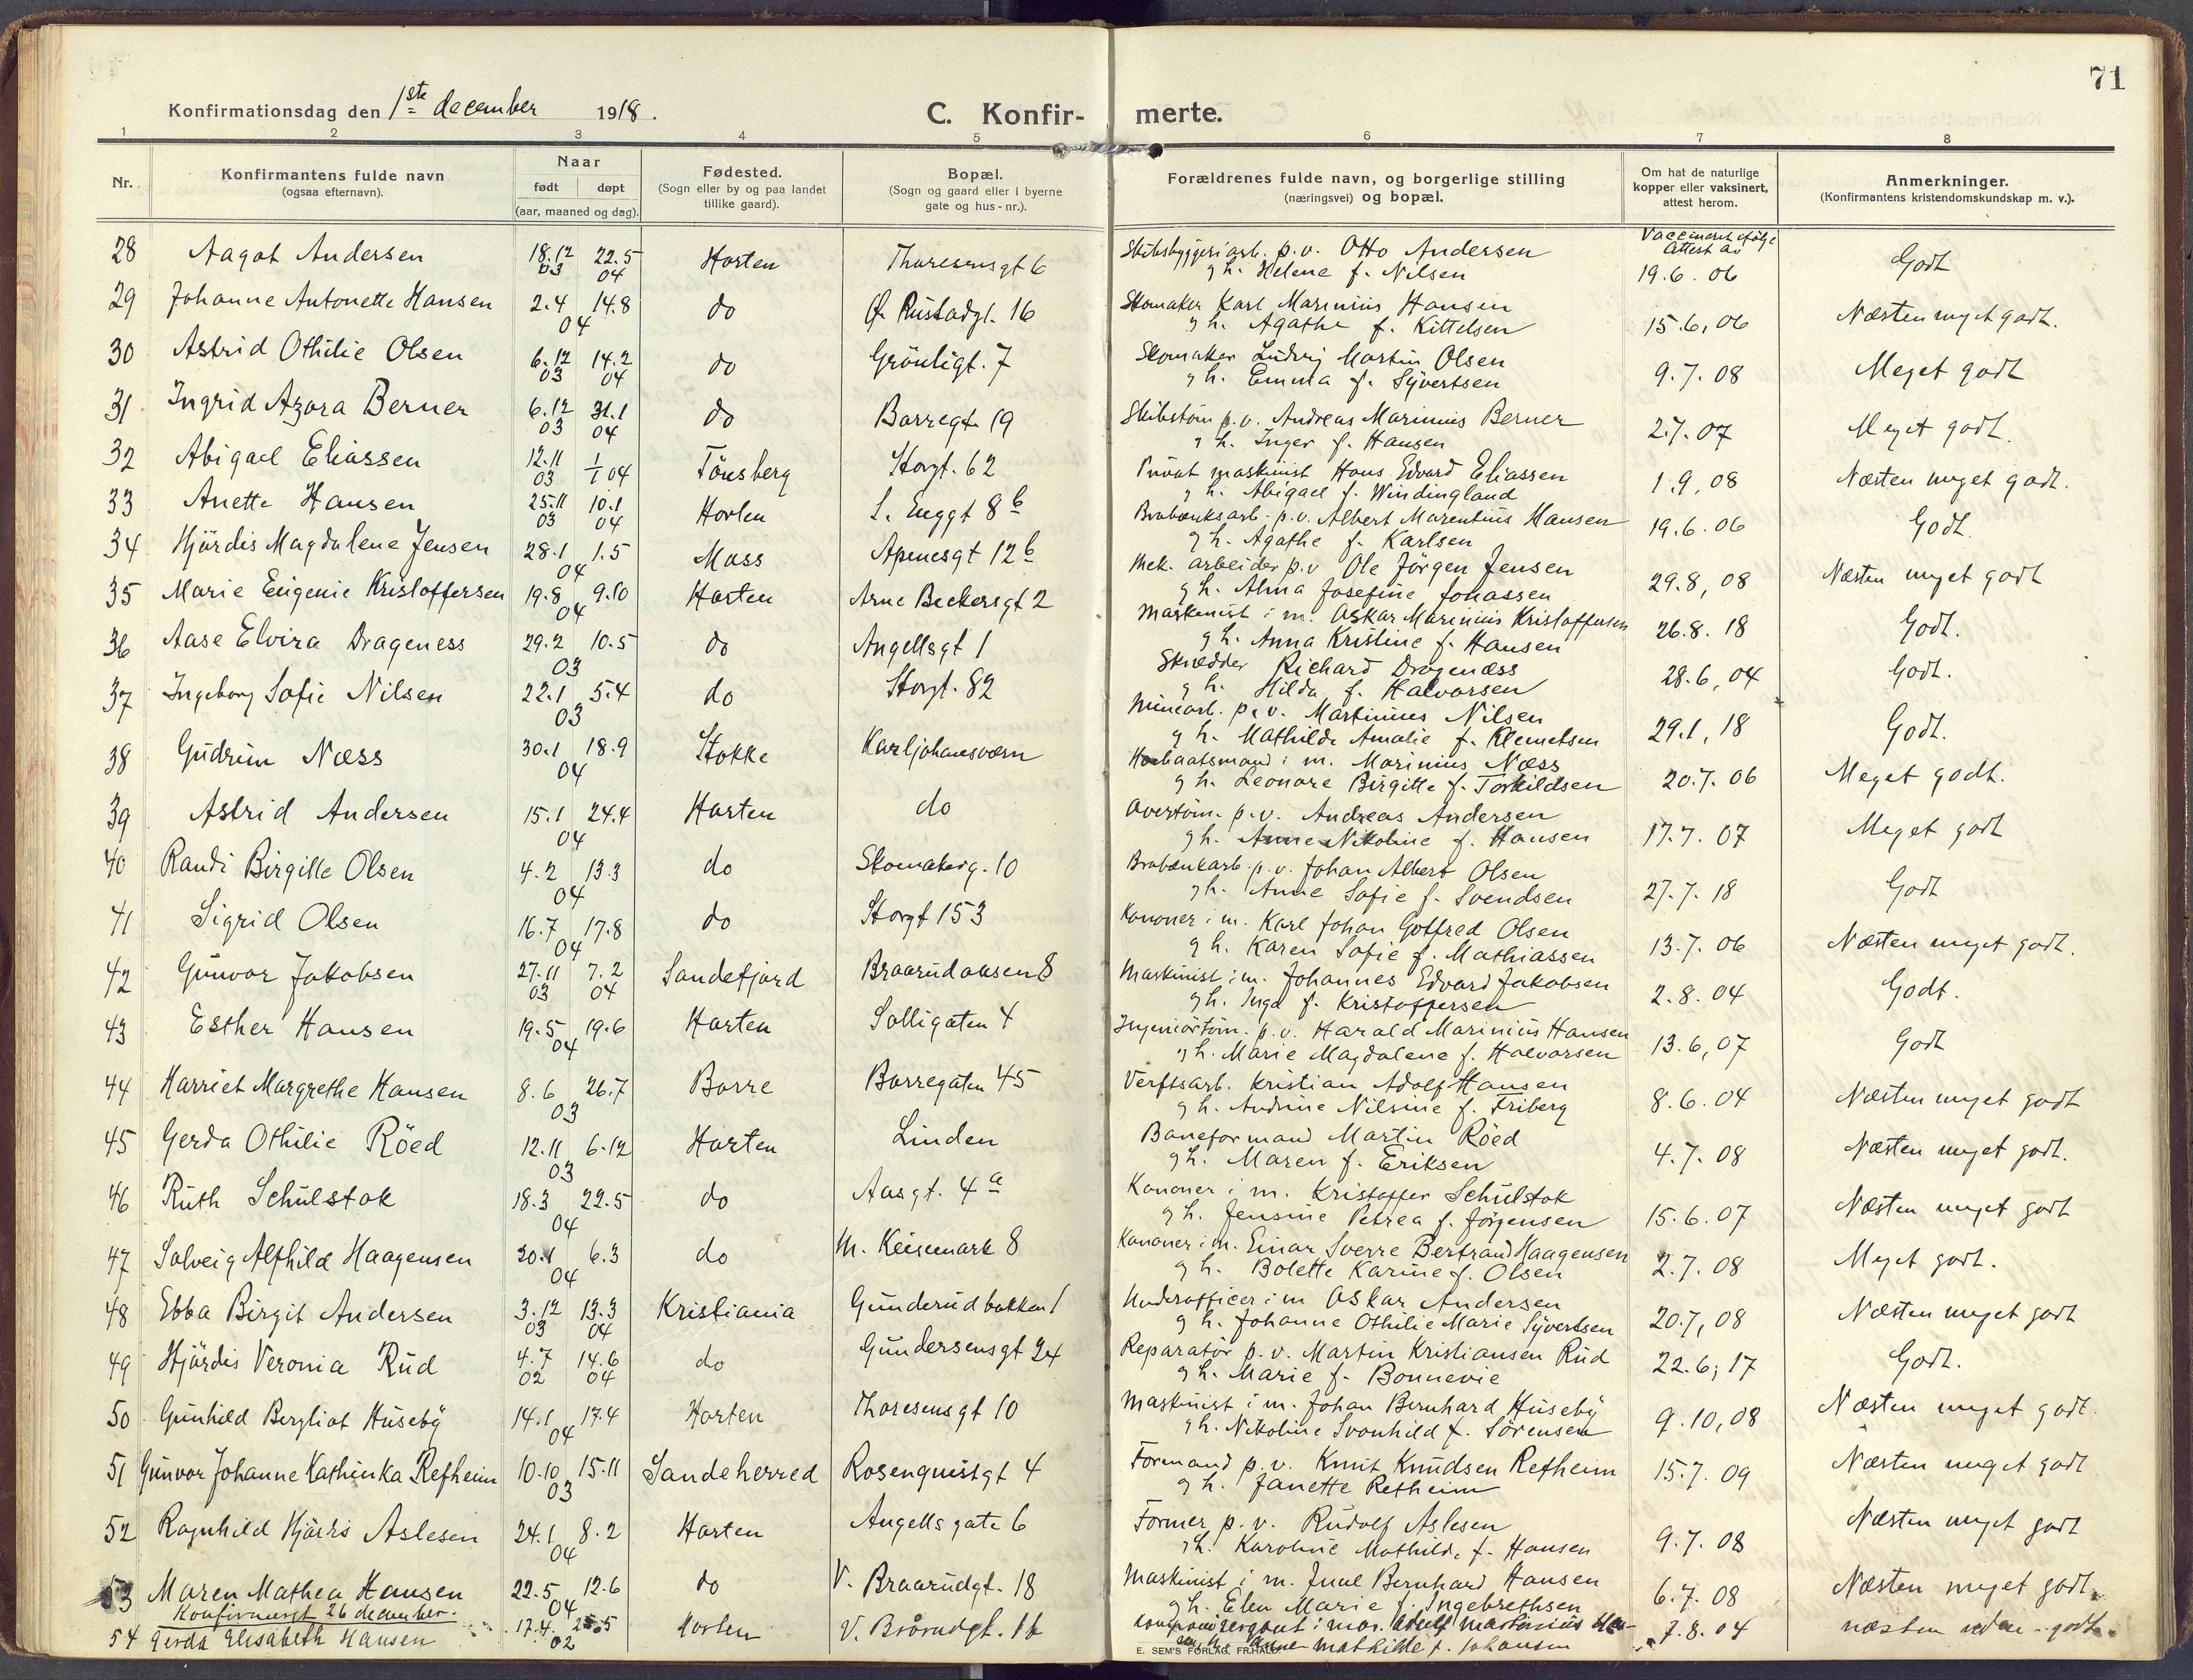 71
Konfirmationsdag den 1ste december 1918.
C. Konfir- merte.
1 2 3 4 5 6 7 8
Nr. Konfirmantens fulde navn (ogsaa efternavn). Naar født døpt (aar, maaned og dag). Fødested. (Sogn eller by og paa landet tillike gaard). Bopæl. (Sogn og gaard eller i byerne gate og hus-nr.). Forældrenes fulde navn, og borgerlige stilling (næringsvei) og bopæl. Om hat de naturlige kopper eller vaksinert, attest herom. Anmerkninger. (Konfirmantens kristendomskundskap m. v.).
Vaccineret ifølge Attest av
28 Aagot Andersen 18.12 03 22.5 04 Horten Thoresensgt 6 Skibsbyggeriarb. p.v. Otto Andersen 19.6.06 Godt
g h. Helene f. Nilsen
29 Johanne Antonette Hansen 2.4 14.8 04 do Ø. Rustadgt. 16 Skomaker Karl Marinius Hansen 15.6,06 Næsten meget godt.
g h. Agathe f. Kittelsen
30 Astrid Othilie Olsen 6.12 03 14.2 04 do Grönligt. 7 Skomaker Ludvig Martin Olsen 9.7.08 Meget godt
g h. Emma f. Syvertsen
31 Ingrid Azora Berner 6.12 03 31.1 04 do Borregt. 19 Skibstøm p.v. Andreas Marinius Berner 2.7.07 Meget godt.
g h. Inger f. Hansen
32 Abigael Eliassen 12.11 03 1/1 04 Tönsberg Storgt. 62 Privat maskinist Hans Edvard Eliassen 1.9,08 Næsten meget godt.
g h. Abigael f. Windingland
33 Anette Hansen 25.11 03 10.1 04 Horten L. Enggt 8 b Brobænksarb. p.v. Albert Marentius Hansen 19.6.06 Godt.
g h. Agathe f. Karlsen
34 Hjördis Magdalene Jensen 28.1 1.5 04 Moss Apenesgt 12 b Mek. arbeider p.v Ole Jörgen Jensen 29.8,08 Næsten meget godt
g h. Alma Josefine Jonassen
35 Marie Eugenie Kristoffersen 19.8 9.10 04 Horten Arne Beckersgt 2 Maskinist i m. Oskar Marinius Kristoffersen 26.8.18 Godt.
g h. Anna Kristine f. Hansen
36 Aase Elvira Drageness 29.2 10.5 03 do Angellsgt 1 Skrædder Richard Dragenæss 28.6,04 Godt.
g h. Hilda f. Halvorsen
37 Ingeborg Sofie Nilsen 22.1 5.4 03 do Storgt. 82 Minearb. p.v. Martinius Nilsen 29.1,18 Godt.
g h. Mathilde Amalie f. Klemetsen
38 Gudrun Næss 30.1 18.9 04 Stokke Karljohansværn i m. Marinius Næss 20.7.06 Meget godt.
g h. Leonore Birgitte f. Torkildsen
39 Astrid Andersen 15.1 24.4 04 Horten do Overtöm. p.v. Andreas Andersen 17.7.07 Meget godt
g h. Anne Nikoline f. Hansen
40 Randi Birgitte Olsen 4.2 13.3 04 do Skomakerg. 10 Brobænkarb. p.v. Johan Albert Olsen 27.7.18 Godt
g h. Anne Sofie f. Svendsen
41 Sigrid Olsen 16.7 17.8 04 do Storgt 153 Kanoner i m. Karl Johan Gotfred Olsen 13.7.06 Næsten meget godt.
g h. Karen Sofie f. Mathiassen
42 Gunvor Jakobsen 27.11 03 7.2 04 Sandefjord Braarudaasen 8 Maskinist i m. Johannes Edvard Jakobsen 2.8.04 Godt.
g h. Inga f. Kristoffersen
43 Esther Hansen 19.5 19.6 04 Horten Solligaten 4 Ingeniörtöm. p.v. Harald Marinius Hansen 13.6,07 Godt
g h. Marie Magdalene f. Halvorsen
44 Harriet Margrethe Hansen 8.6 26.7 03 Borre Borregaten 45 Verftsarb. Kristian Adolf Hansen 8.6.04 Næsten meget godt
g h. Andrine Nilsine f. Friberg
45 Gerda Othilie Röed 12.11 6.12 03 Horten Linden Baneformand Martin Röed 4.7.08 Næsten meget godt.
g h. Maren f. Eriksen
46 Ruth Schulstok 18.3 22.5 04 do Aasgt. 4 a Kanoner i m. Kristoffer Schulstok 15.6.07 Næsten meget godt
g h. Jensine Petrea f. Jörgensen
47 Solveig Alfhild Haagensen 20.1 6.3 04 do M. Keisemark 8 Kanoner i m. Einar Sverre Bertrand Haagensen 2.7.08 Meget godt.
g h. Bolette Karine f. Olsen
48 Ebba Birgit Andersen 3.12 03 13.3 04 Kristiania Gunderudbakken 1 Underofficer i m Oskar Andersen 20.7,08 Næsten meget godt
g h. Johanne Othilie Marie Syvertsen
49 Hjördis Veronia Rud 4.7 02 14.6 04 do Gundersensgt 24 Reparatör p.v. Martin Kristiansen Rud 22.6,17 Godt.
g h. Marie f. Bonnevie
50 Gunhild Bergliot Huseby 14.1 17.4 04 Horten Thoresensgt 10 Maskinist i m. Johan Bernhard Huseby 9.10,08 Næsten meget godt.
g h. Nikoline Svanhild f. Sörensen
51 Gunvor Johanne Kathinka Refheim 10.10 15.11 03 Sandeherred Rosenquistgt 4 Formand p.v. Knut Knudsen Refheim 15.7.09 Næsten meget godt
g h. Janette Refheim
52 Ragnhild Hjördis Aslesen 24.1 8.2 04 Horten Angells gate 6 Former p.v. Rudolf Aslesen 9.7.08 Næsten meget godt
g h. Karoline Mathilde f. Hansen
53 Maren Mathea Hansen 22.5 12.6 04 do V. Braarudgt. 18 Maskinist i m. Juul Bernhard Hansen 6.7.08 Næsten meget godt.
g h. Elen Marie f. Ingebrethsen
Konfirmeret 26 december.
54 Gerda Elisabeth Hansen 17.4. 25.5 02 Horten V. Brårudgt. 16 i mar. Adolf Martinius Han- 7.8.04 næsten godt.
sen, h. Anne Mathilde f. Johansen
E. SEM'S FORLAG, FR.HALD.